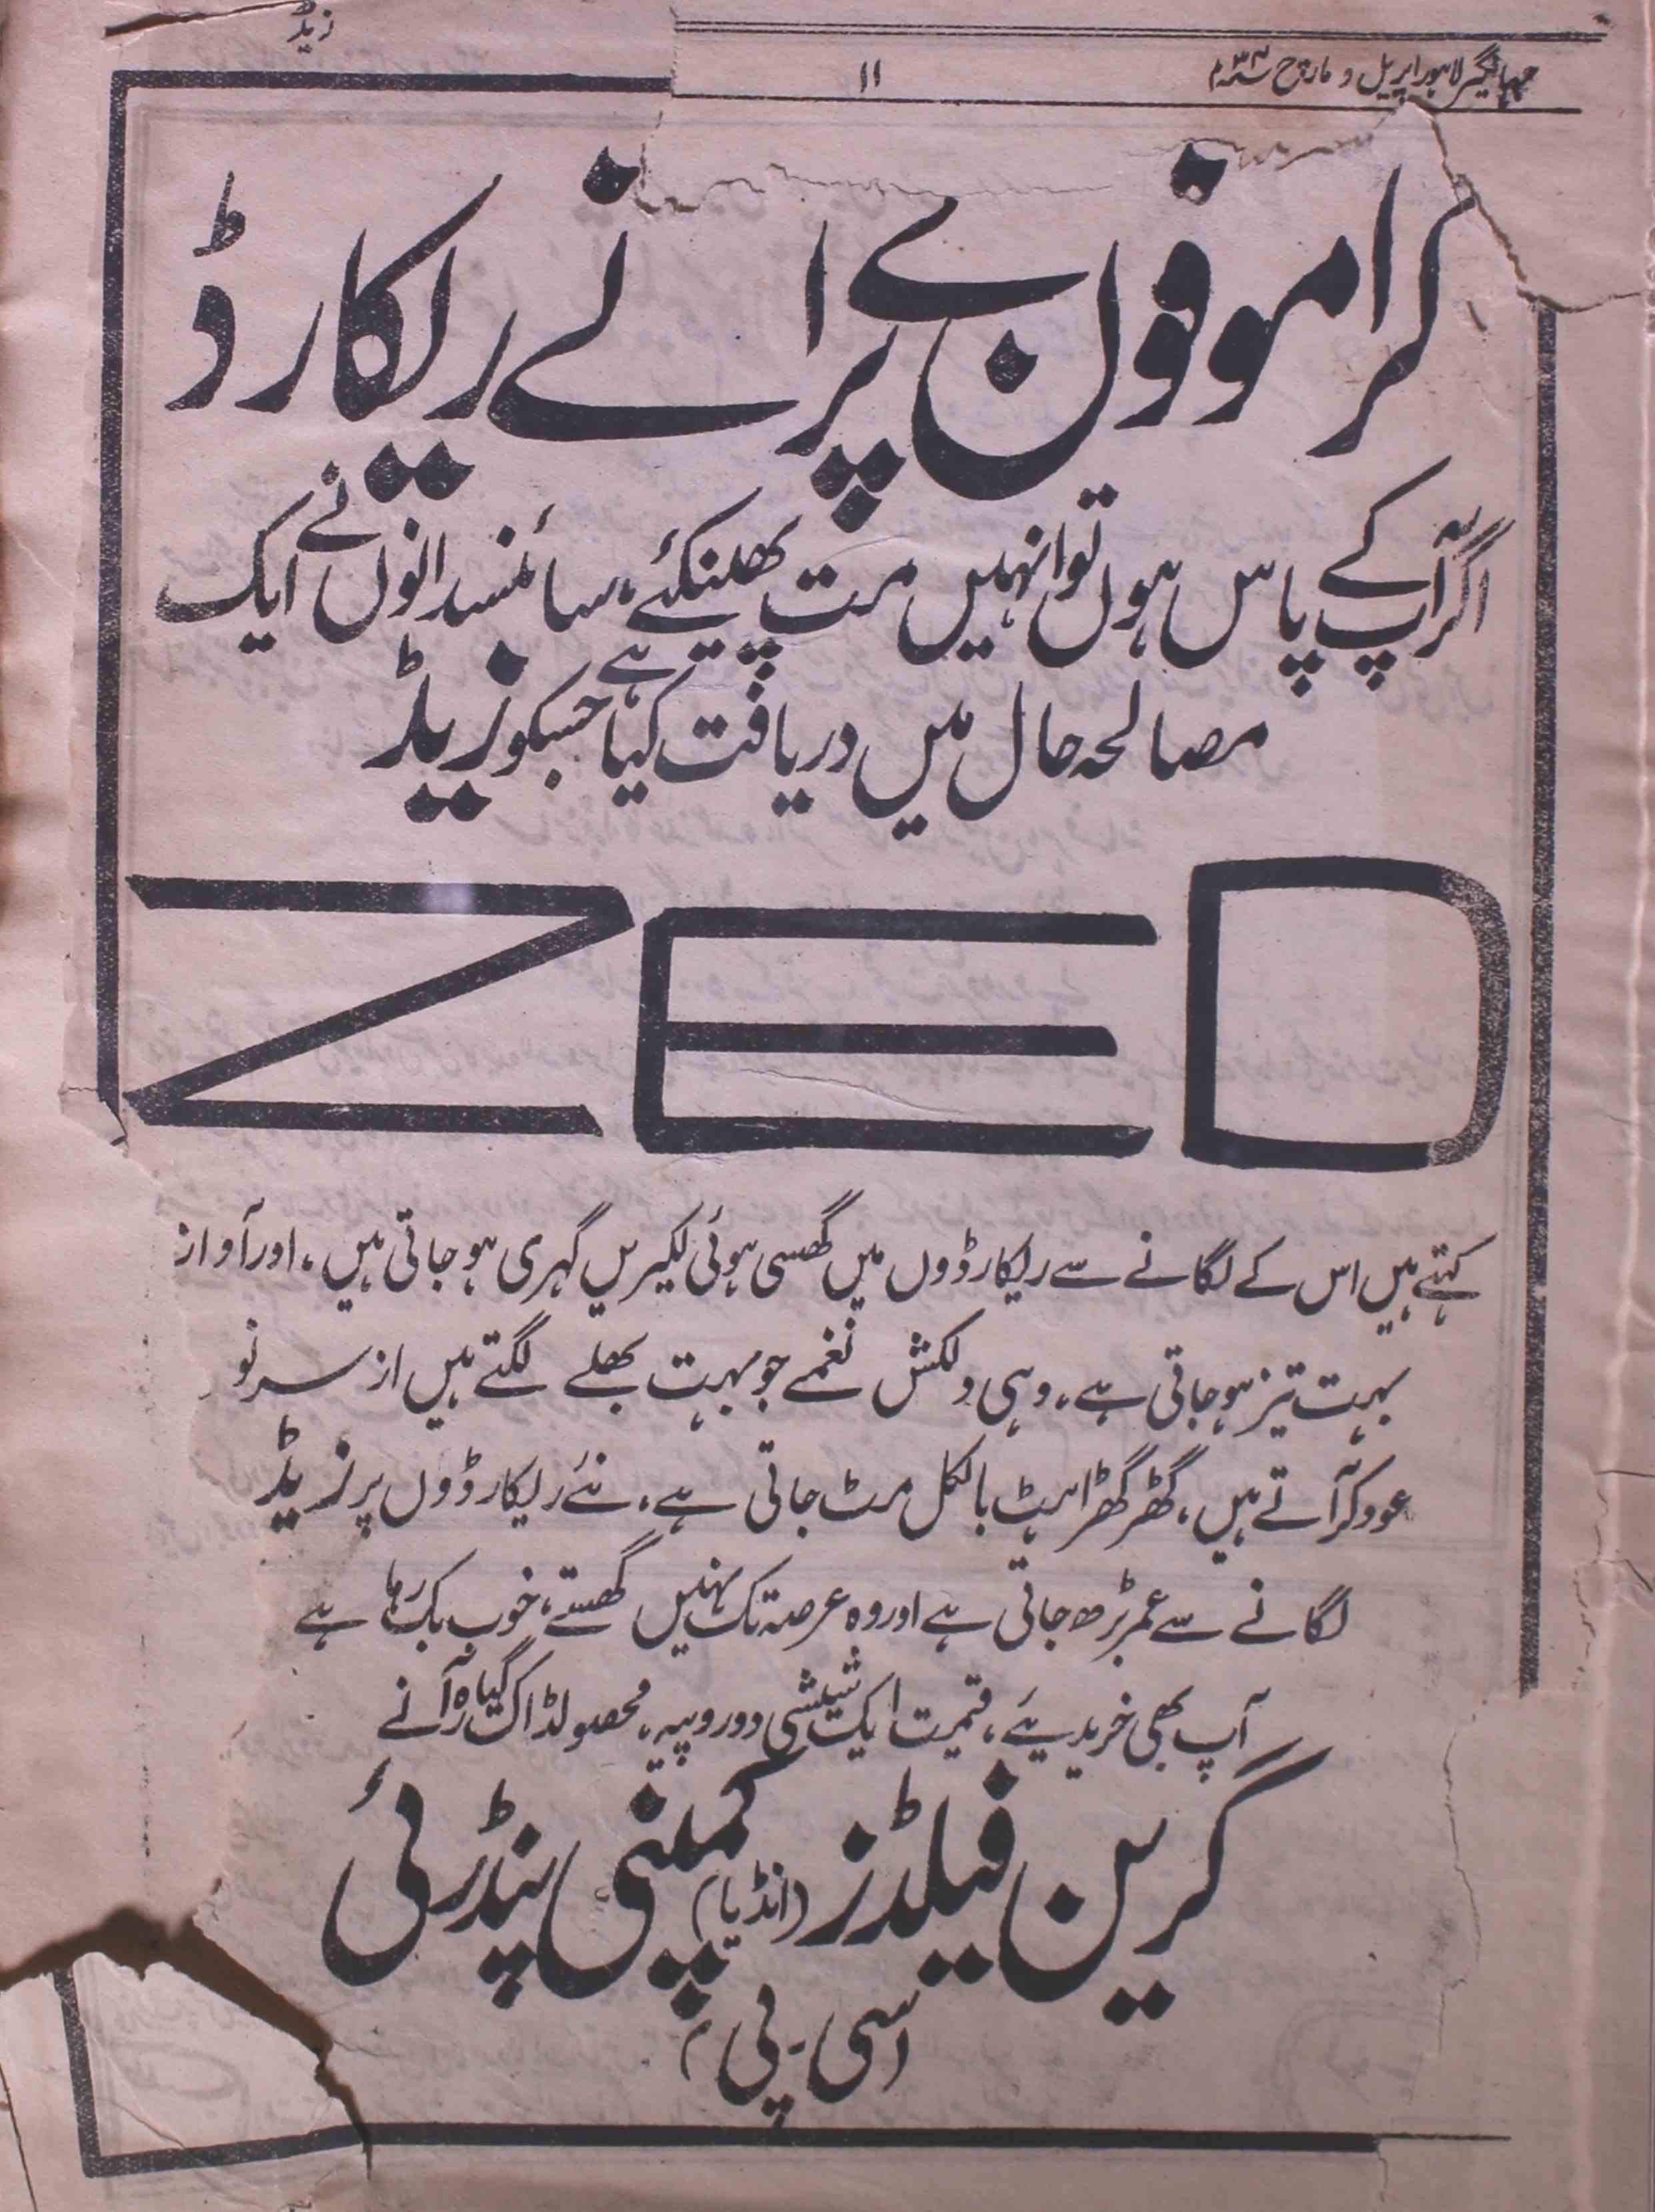 جہانگیر لاہور اپریل و مارچ ۳۳ء
۱۱
زیڈ
گراموفون کے پرانے ریکارڈ
اگر آپ کے پاس ہوں تو انہیں مت پھینکئے، سائنسدانوں نے ایک
مصالحہ حال میں دریافت کیا ہے جسکو زیڈ
ZED
کہتے ہیں اس کے لگانے سے ریکارڈوں میں گھسی ہوئی لکیریں گہری ہو جاتی ہیں، اور آواز
بہت تیز ہو جاتی ہے۔ وہی دلکش نغمے جو بہت بھلے لگتے ہیں از سر نو
عود کر آتے ہیں، گھڑ گھڑاہٹ بالکل مٹ جاتی ہے۔ نئے ریکارڈوں پر زیڈ
لگانے سے عمر بڑھ جاتی ہے اور وہ عرصہ تک نہیں گھستے، خوب بک رہا ہے
آپ بھی خریدیئے، قیمت ایک شیشی دو روپیہ، محصولڈاک گیارہ آنے
گرین فیلڈز (انڈیا) کمپنی پنڈرئی
(سی۔پی)